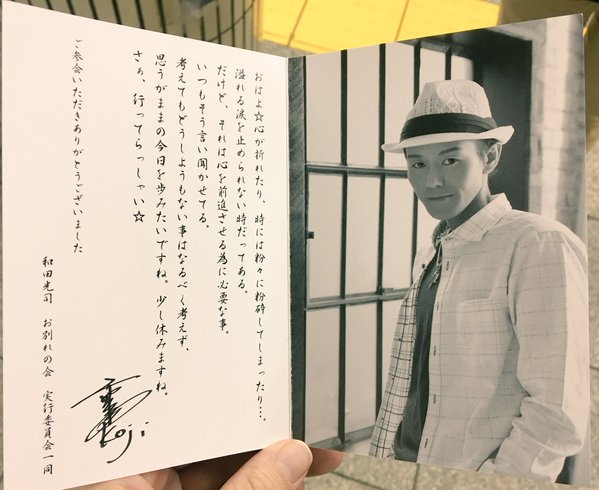 おはよ☆心が折れたり、時には粉々に粉砕してしまったり…。
溢れる涙を止められない時だってある。
だけど、それは心を前進させる為に必要な事。
いつもそう言い聞かせてる。
考えてもどうしようもない事はなるべく考えず、
思うがままの今日を歩みたいですね。少し休みますね。
さぁ、行ってらっしゃい☆
ご参会いただきありがとうございました
和田光司 お別れの会 実行委員会一同
Koji